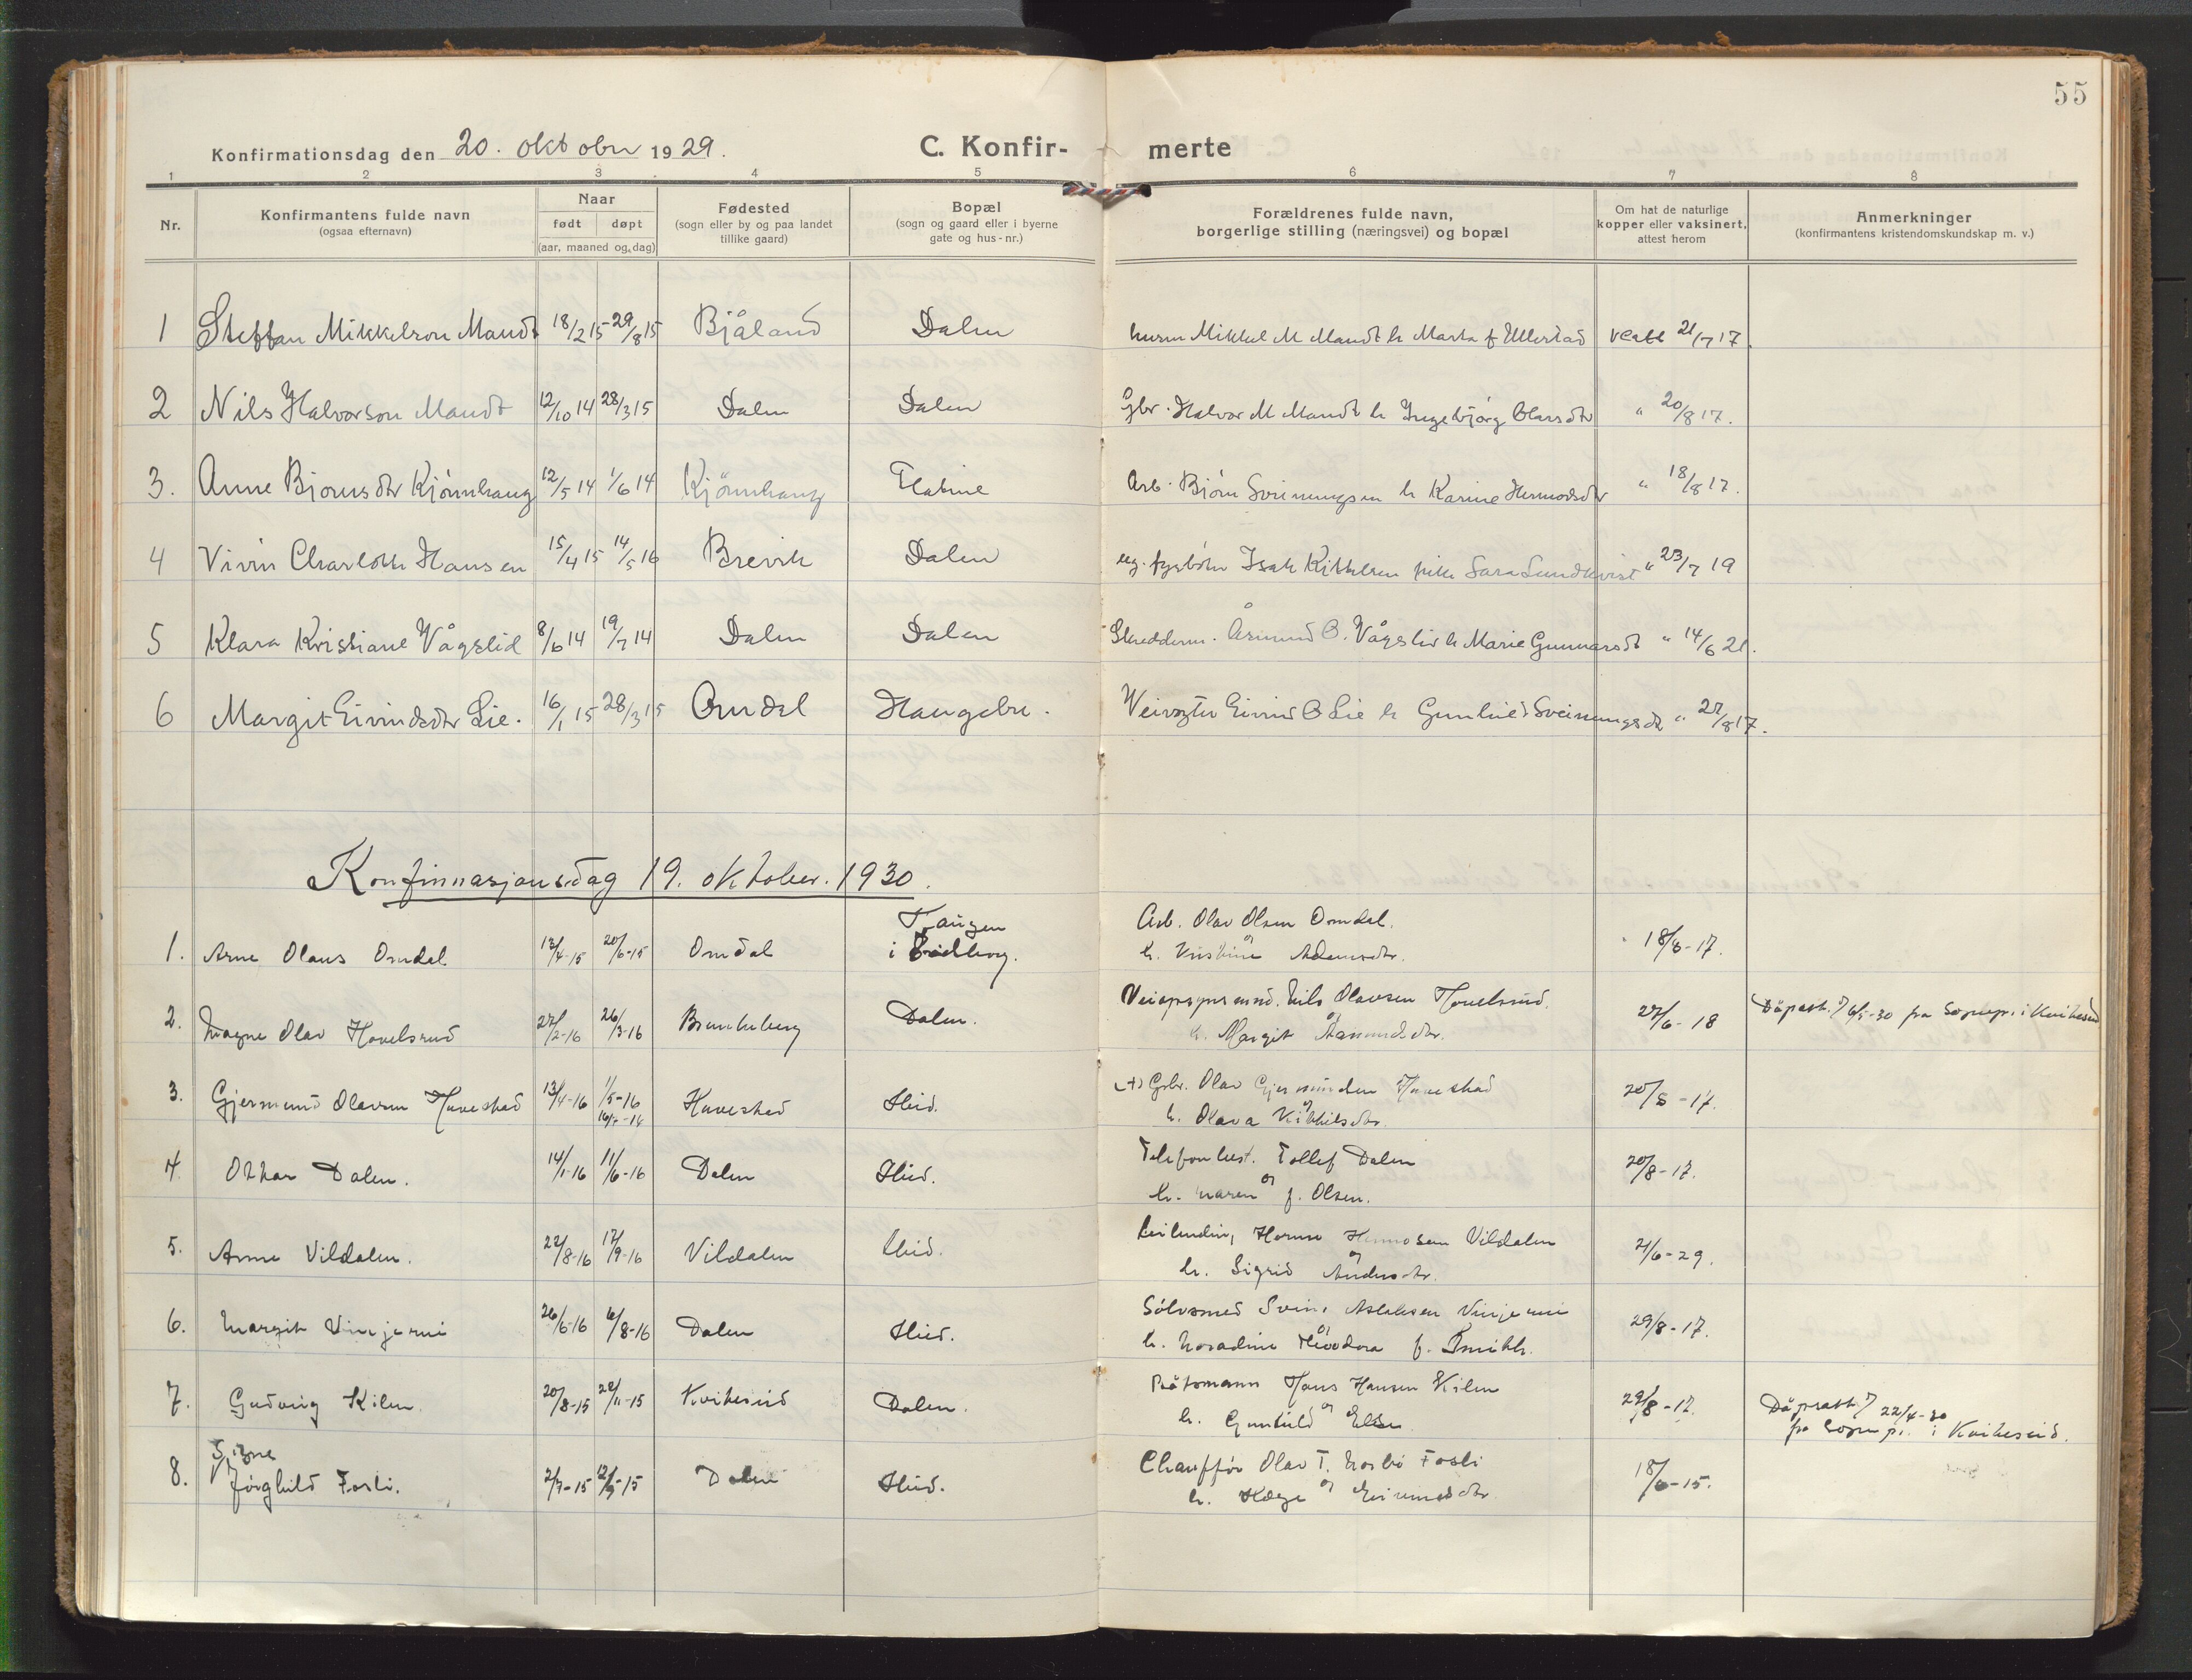 55
Konfirmationsdag den 20. oktober 1929.
C. Konfir-
merte
1 2 3 4 5 6 7 8
Nr.
Konfirmantens fulde navn
(ogsaa efternavn)
Naar
født døpt
(aar, maaned og dag)
Fødested
(sogn eller by og paa landet
tillike gaard)
Bopæl
(sogn og gaard eller i byerne
gate og hus-nr.)
Forældrenes fulde navn,
borgerlige stilling (næringsvei) og bopæl
Om hat de naturlige
kopper eller vaksinert,
attest herom
Anmerkninger
(konfirmantens kristendomskundskap m. v.)
1 Steffan Mikkelson Mandt 18/2 15 29/8 15 Bjåland Dalen Mikkel M Mandt h Marta f 21/7 17.
2 Nils Halvorson Mandt 12/10 14 28/3 15 Dalen Dalen Gbr. Halvor M Mandt h Ingebjørg Olavsdtr " 20/8 17.
3. Anne Bjørnsdtr Kjönnhaug 12/5 14 1/6 14 Kjönnhaug Arb. Bjørn Sveinungsen h Karine Hermodsdtr " 18/8 17.
4 Vivin Charlotte Hansen 15/4 15 14/5 16 Brevik Dalen Isak Kittelsen pike Sara Lundkvist " 23/7 19
5 Klara Kristiane Vågslid 8/6 14 19/7 14 Dalen Dalen Skredderm. Åsmund O. Vågslid h Marie Gunnarsdt " 14/6 21.
6 Margit Eivindsdtr Lie. 16/1 15 28/3 15 Omdal Haugebru. Eivind O Lie h Gunhild Sveinungsdt " 27/8 17.
Konfirmasjonsdag 19. oktober. 1930.
Tangen
Arb. Olav Olsen Omdal.
1. Arne Olaus Omdal 13/4-15 20/6-15 Omdal i
og
h. Kristine Adamsdtr. 18/8-17.
Nils Olavsen Hovelsrud.
2. Magne Olav Hovelsrud 27/2-16 26/3-16 Dalen.
og
h. Margit Aasmundsdtr. 27/6-18 Dåpsatt. 7/5-30 fra Sognepr. i Kviteseid
(+) Gbr. Olav Gjermundsen Havestad
3. Gjermund Olavsen Havestad 13/4-16 1/5-16 Havestad Ibid.
og
h. Olava Kittilsdtr. 20/8-17.
Tollef Dalen
4. Ottar Dalen. 14/1-16 11/6-16 Dalen Ibid.
og
h. Maren f. Olsen. 20/8-17.
Hermosen Vildalen
5. Anne Vildalen. 22/8-16 17/9-16 Vildalen Ibid.
og
h. Sigrid Andersdtr. 21/6-29.
Sölvsmed Svein Aslaksen Vinjerui
6. Margit Vinjerui 26/6-16 6/8-16 Dalen Ibid.
og
h. Theodora f. 29/8-17.
Båtsmann Hans Hansen Kilen
7. Gudveig Kilen. 20/8-15 Kviteseid Dalen.
og
h. Gunhild 29/8-17. Dåpsatt. 22/4-30
fra Sognepr. i Kviteseid.
Signe
Chauffør Olav T. Fosli
8. Jørghild Fosli. 2/7-15 12/9-15 Dalen Ibid.
og
h. Hæge Eivindsdtr. 18/6-15.